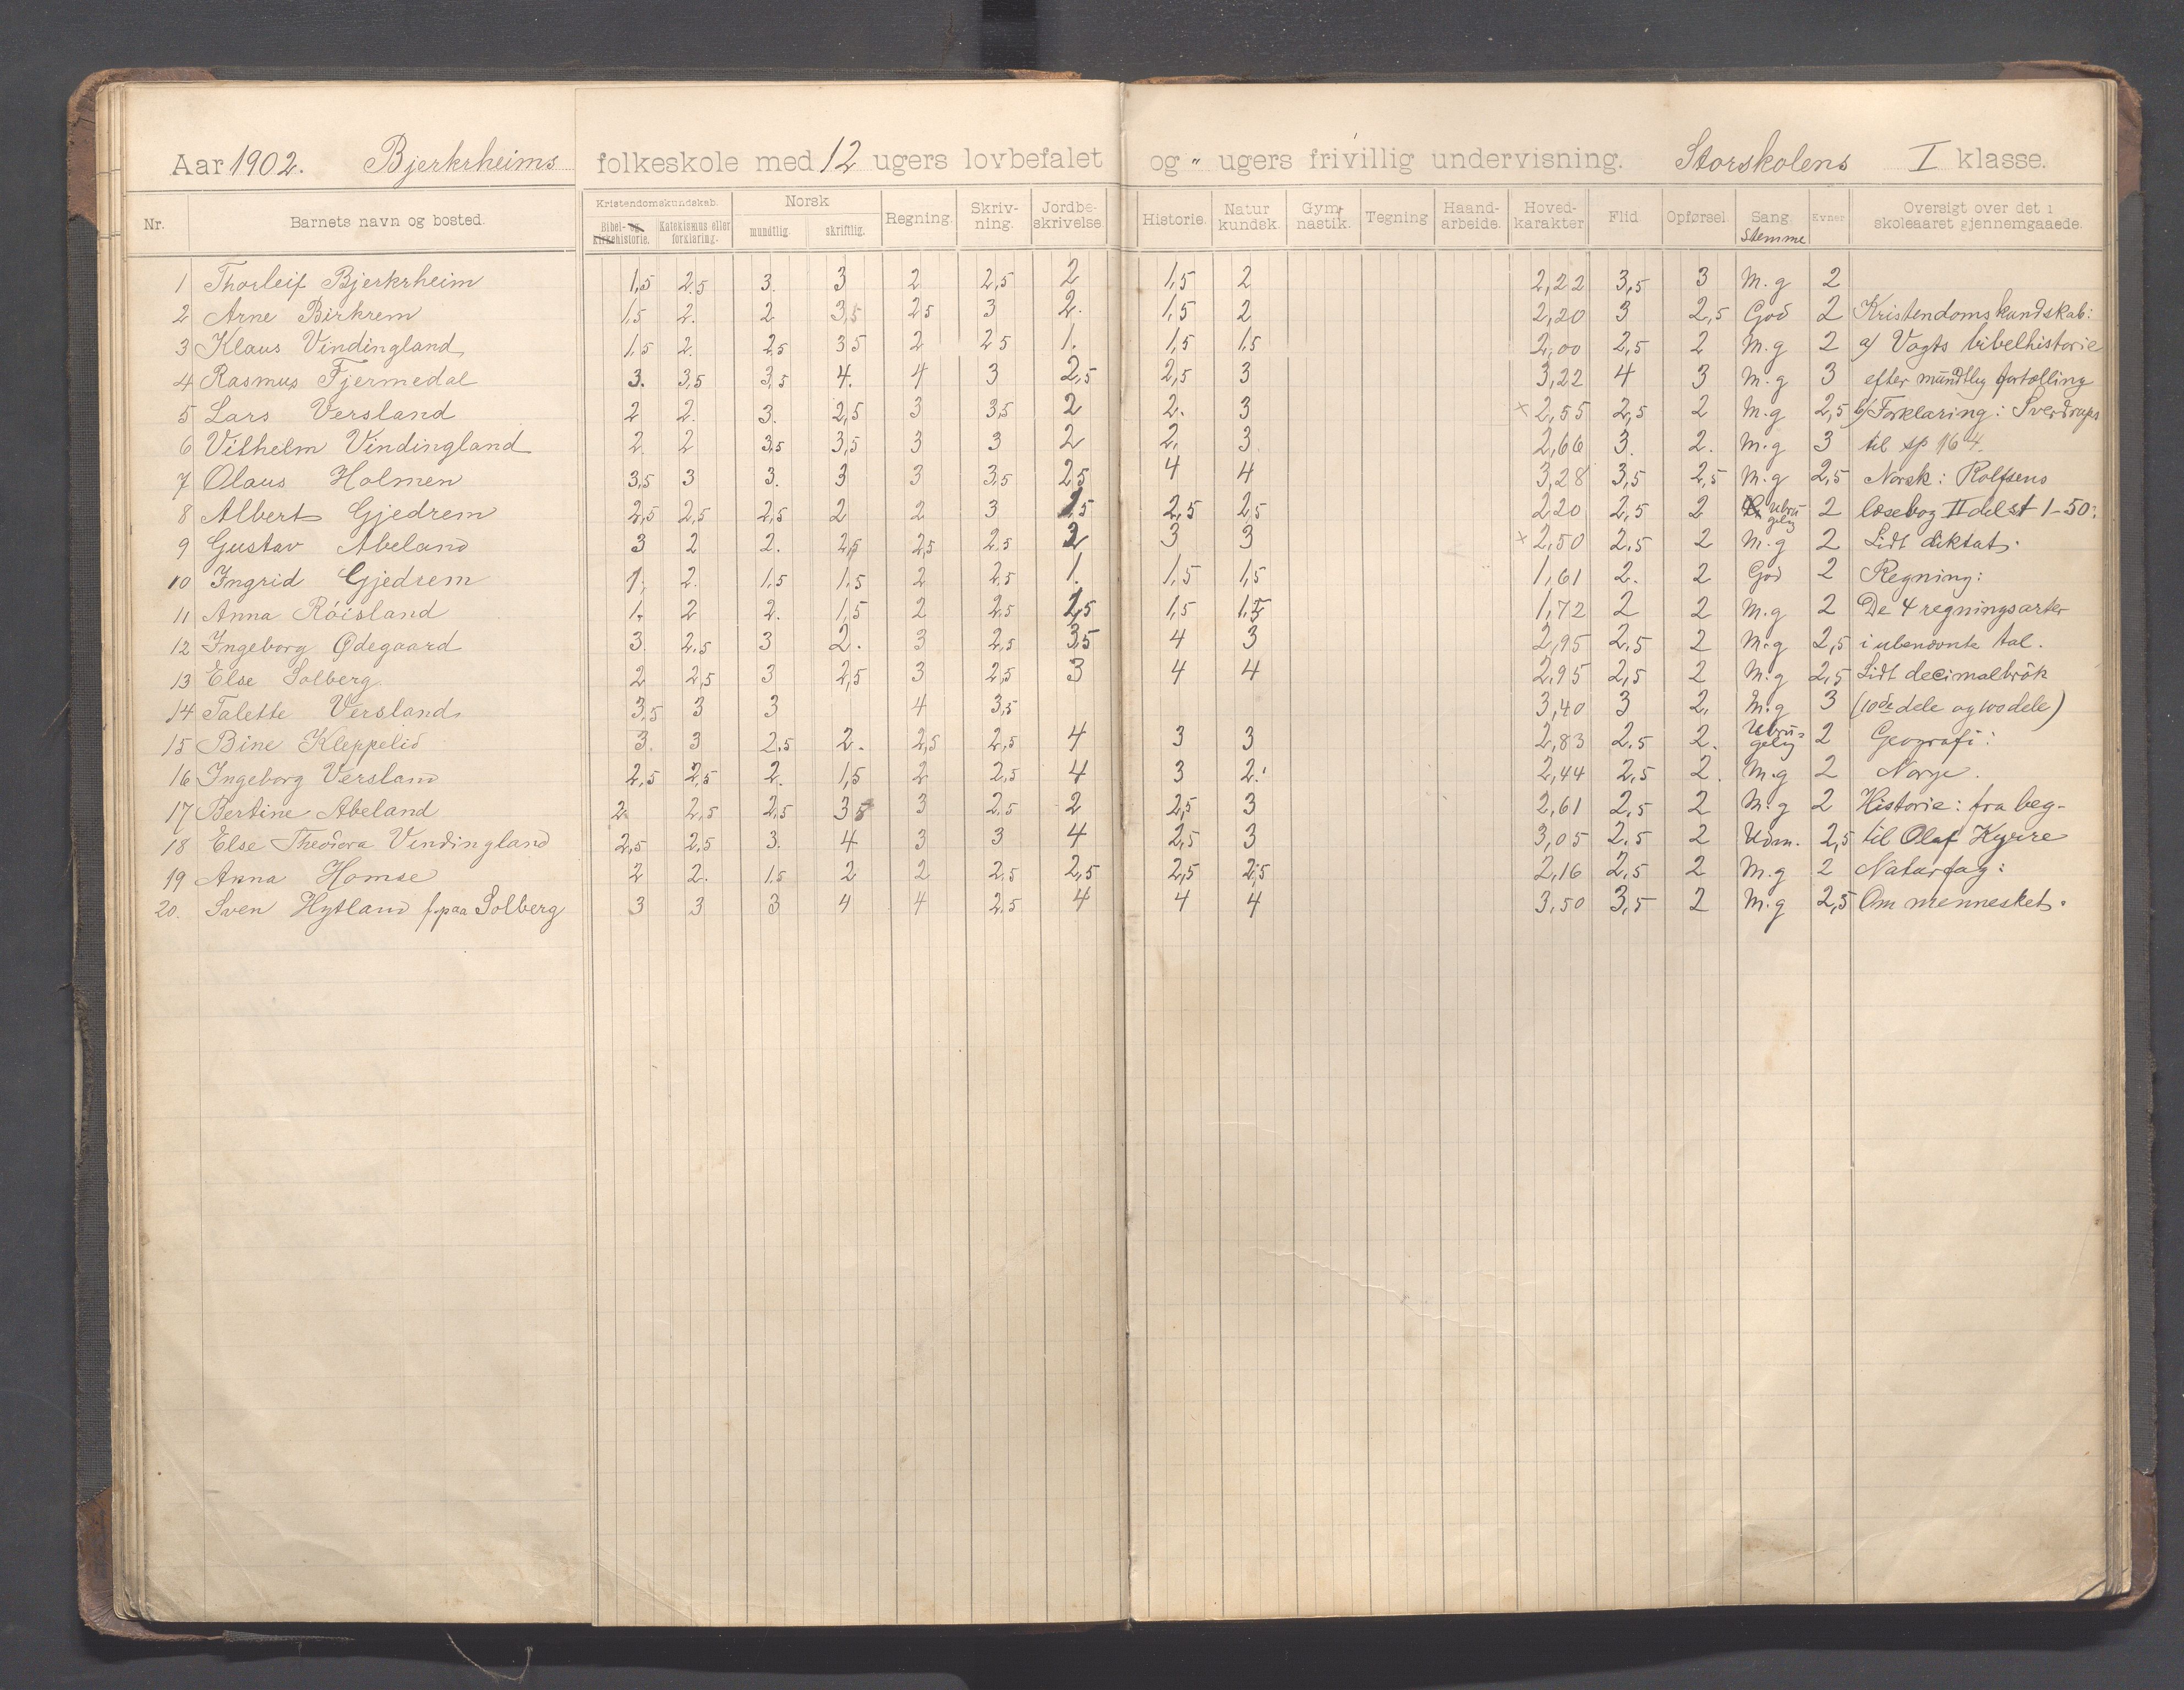 Aar 1902. Bjerkrheims folkeskole med 12 ugers lovbefalet og " ugers frivillig undervisning. Storskolens I klasse.
Nr. Barnets navn og bosted. Kristendomskundskab. Bibel- og kirkehistorie. Katekismus eller forklaring. Norsk mundtlig. skriftlig. Regning. Skrivning. Jordbeskrivelse Historie. Naturkundsk. Gymnastik. Tegning Haandarbeide. Hovedkarakter Flid Opførsel Sang. Stemme Evner Oversigt over det i skoleaaret gjennemgaaede.
1 Thorleif Bjerkrheim 1,5 2,5 3. 3 2 2,5 2 1,5 2 2,22 3,5 3 M.g 2
2 Arne Birkrem 1,5 2. 2 3,5 2,5 3 2. 1,5 2 2,20 3 2,5 God 2 Kristendomskundskab:
3 Klaus Vindingland 1,5 2. 2,5 3,5 2 2,5 1. 1,5 1,5 2,00 2,5 2 M.g 2 a/ Vogts bibelhistorie
4 Rasmus Fjermedal 3. 3,5 3,5 4. 4 3 2,5 2,5 3 3,22 4 3 M.g 3 efter mundtlig fortælling
5 Lars Versland 2 2. 3. 2,5 3 3,5 2 2. 3 × 2,55 2,5 2 M.g 2,5 b/ Forklaring: Sverdrups
6 Vilhelm Vindingland 2. 2 3,5 3,5 3 3 2 2. 3 2,66 3. 2. M.g 3 til sp 164.
7 Olaus Holmen 3,5 3 3. 3 3 3,5 2,5 4 4 3,28 3,5 2,5 M.g 2,5 Norsk: Rolfsens
8 Albert Gjedrem 2,5 2,5 2,5 2 2 3 1,5 2,5 2,5 2,20 2,5 2 Ubrugelig 2 læsebog II del st 1-50.
9 Gustav Abeland 3 2 2. 2,5 2,5 2,5 2 3 3 × 2,50 2,5 2 M.g 2 Lidt diktat.
10 Ingrid Gjedrem 1. 2. 1,5 1,5 2 2,5 1. 1,5 1,5 1,61 2. 2 God 2 Regning:
11 Anna Röisland 1. 2 2. 1,5 2 2,5 1,5 1,5 1,5 1,72 2 2 M.g 2 De 4 regningsarter
12 Ingeborg Ødegaard 3 2,5 3 2. 3 2,5 3,5 4 3 2,95 2,5 2 M.g 2,5 i ubenævnte tal.
13 Else Solberg. 2 2,5 3 2,5 3 2,5 3 4 4 2,95 2,5 2 M.g 2,5 Lidt decimalbrök
14 Talette Versland. 3,5 3 3 4 3,5 3,40 3 2. M.g 3 (10de dele og 100dele)
15 Bine Kleppelid 3. 3 2,5 2. 2,5 2,5 4 3 3 2,83 2,5 2. Ubrugelig 2 Geografi:
16 Ingeborg Versland 2,5 2,5 2. 1,5 2 2,5 4 3 2. 2,44 2,5 2. M.g 2 Norge.
17 Bertine Abeland 2. 2,5 2,5 3,5 3 2,5 2 2,5 3 2,61 2,5 2 M.g 2 Historie: fra beg-
18 Else Theodora Vindingland 2,5 2,5 3. 4 3 3 4 2,5 3 3,05 2,5 2 Udm. 2,5 til Olaf Kyrre
19 Anna Homse 2 2. 1,5 2 2 2,5 2,5 2,5 2,5 2,16 2,5 2 M.g 2 Naturfag:
20. Sven Hytland f. paa Solberg 3 3 3 4 4 2,5 4 4 4 3,50 3,5 2 M.g 2,5 Om mennesket.